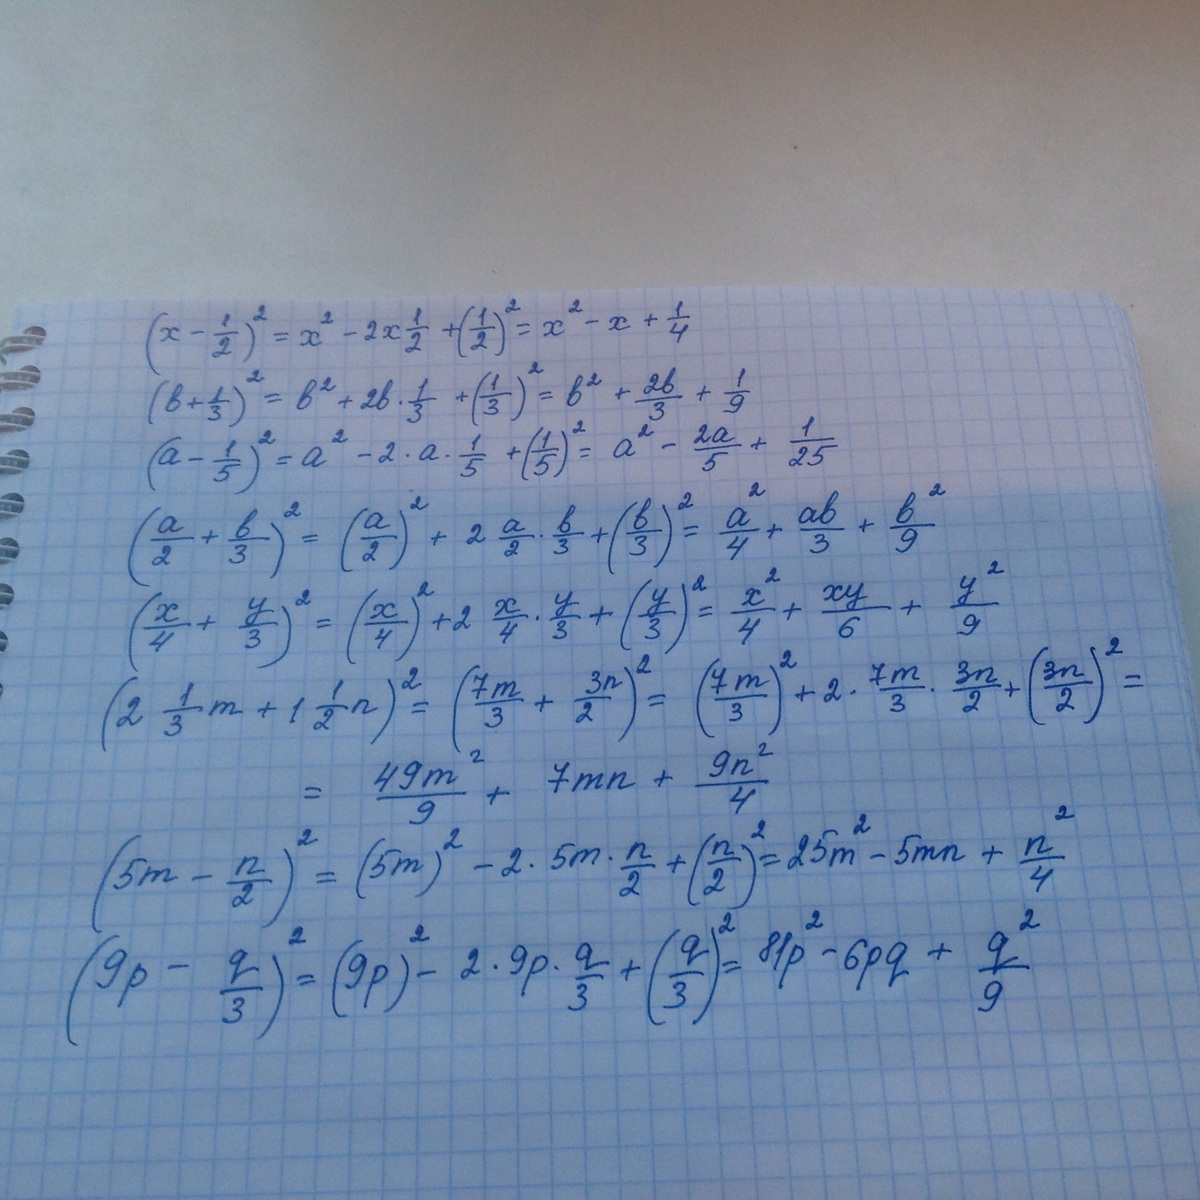 (x - 1/2)² = x² - 2x 1/2 + (1/2)² = x² - x + 1/4
(в + 1/3)² = в² + 2в · 1/3 + (1/3)² = в² + 2в/3 + 1/9
(a - 1/5)² = a² - 2 · a · 1/5 + (1/5)² = a² - 2a/5 + 1/25
(a/2 + в/3)² = (a/2)² + 2 a/2 · в/3 + (в/3)² = a²/4 + aв/3 + в²/9
(x/4 + y/3)² = (x/4)² + 2 x/4 · y/3 + (y/3)² = x²/4 + xy/6 + y²/9
(2 1/3 m + 1 1/2 n)² = (7m/3 + 3n/2)² = (7m/3)² + 2 · 7m/3 · 3n/2 + (3n/2)² =
= 49m²/9 + 7mn + 9n²/4
(5m - n/2)² = (5m)² - 2 · 5m · n/2 + (n/2)² = 25m² - 5mn + n²/4
(9p - q/3)² = (9p)² - 2 · 9p · q/3 + (q/3)² = 81p² - 6pq + q²/9